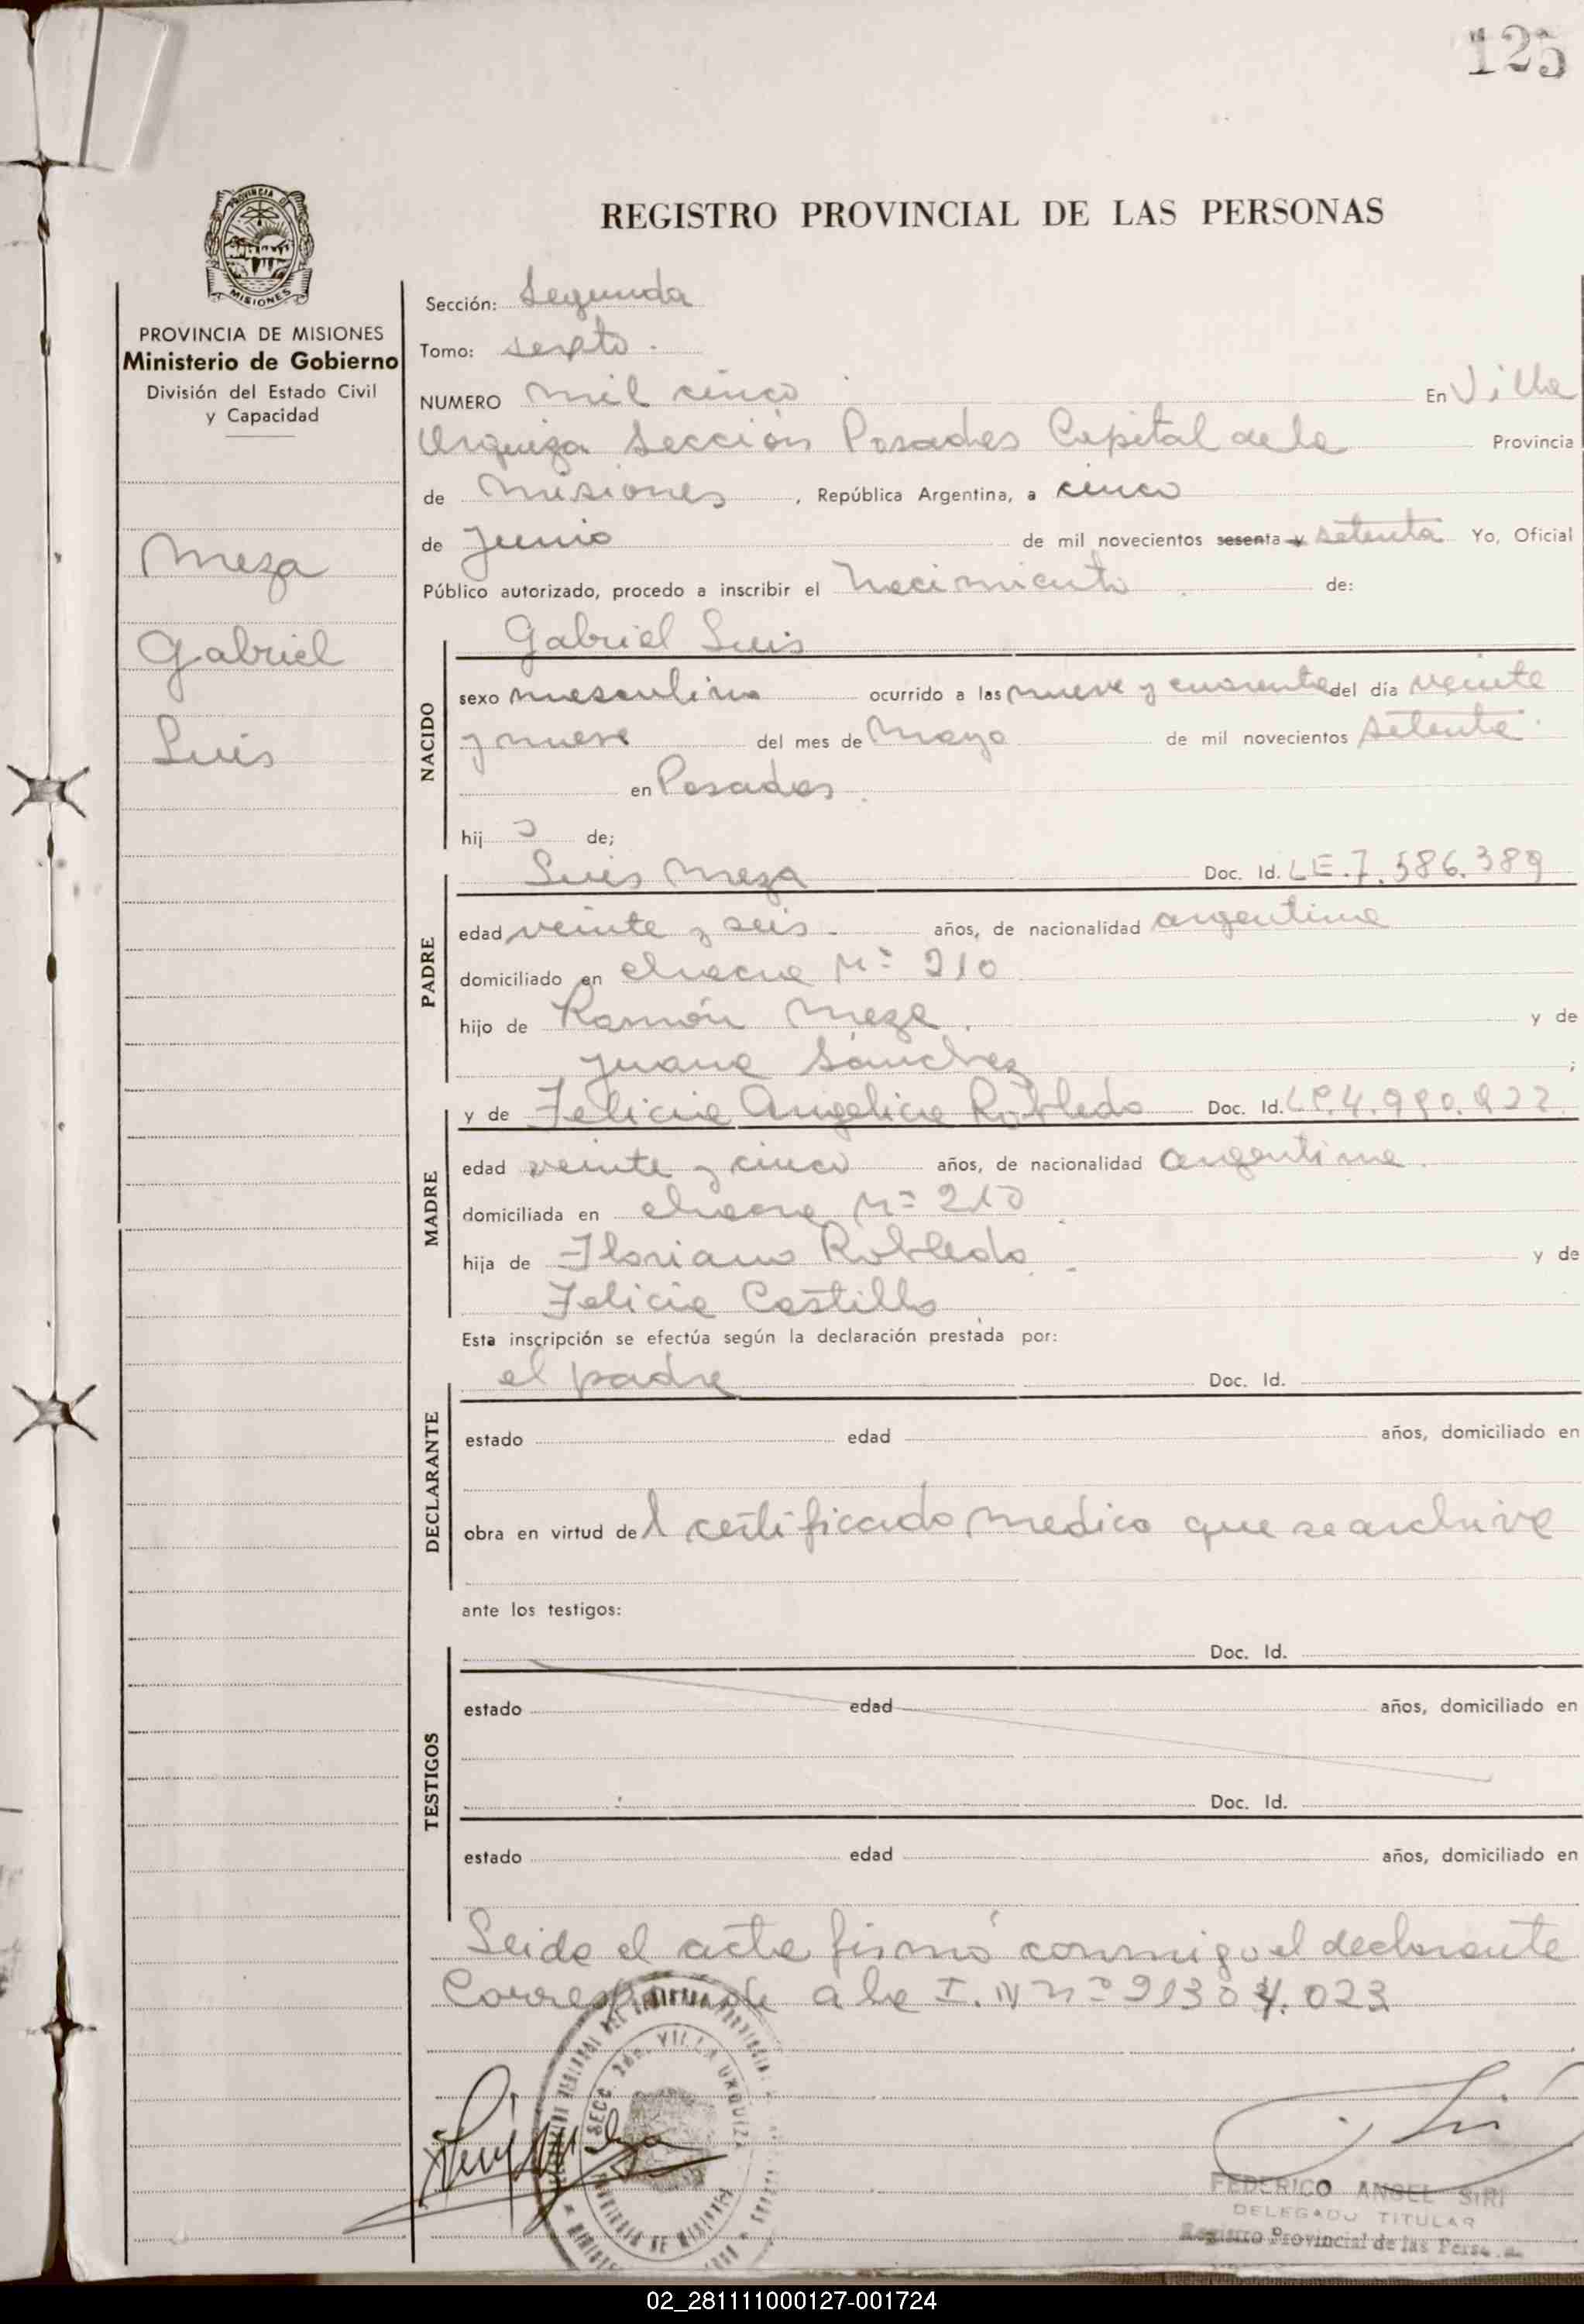 125
PROVINCIA DE
MISIONES
REGISTRO PROVINCIAL DE LAS PERSONAS
PROVINCIA DE MISIONES
Ministerio de Gobierno
División del Estado Civil
y Capacidad
Meza
Gabriel
Luis
Sección: Segunda
Tomo: sexto.
NUMERO mil cinco En Villa
Urquiza Sección Posadas Capital de la Provincia
de Misiones, República Argentina, a cinco
de Junio de mil novecientos sesenta y setenta Yo, Oficial
Público autorizado, procedo a inscribir el Nacimiento de:
Gabriel Luis
NACIDO
sexo masculino ocurrido a las nueve y cuarenta del día veinte
y nueve del mes de Mayo de mil novecientos setenta
en Posadas
hijo de;
Luis Meza Doc. Id. LE.7.586.389
PADRE
edad veinte y seis años, de nacionalidad argentina
domiciliado en chacra Nº 210
hijo de Ramón Meza y de
Juana Sánchez;
y de Felicia Angelica Robledo Doc. Id. LC.4.
MADRE
edad veinte y cinco años, de nacionalidad argentina
domiciliada en chacra Nº 210
hija de Floriano Robledo y de
Felicia Castillo
Esta inscripción se efectúa según la declaración prestada por:
el padre Doc. Id.
DECLARANTE
estado edad años, domiciliado en
obra en virtud del certificado medico que se archiva
ante los testigos:
Doc. Id.
TESTIGOS
estado edad años, domiciliado en
Doc. Id.
estado edad años, domiciliado en
Leida el acta firmó conmigo el declarante
Corresponde a la I. N nº 21304.023
SECC. 2da. VILLA URQUIZA
PROVINCIA DE MISIONES
Luis Meza
FEDERICO ANGEL SIRI
DELEGADO TITULAR
Registro Provincial de las Pers
02_281111000127-001724